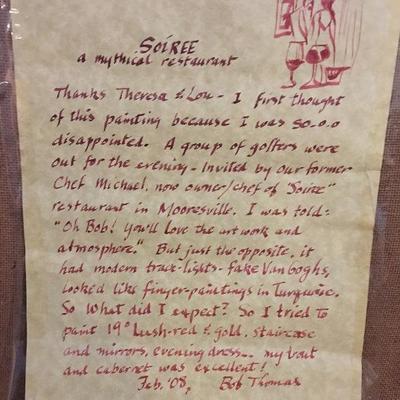 SOIREE
a mythical restaurant
Thanks Theresa & Lou - I first thought
of this painting because I was so-o-o
disappointed. A group of golfers were
out for the evening - Invited by our former
Chef Michael, now owner/chef of "Soiree"
restaurant in Mooresville. I was told:
"Oh Bob! You'll love the art work and
atmosphere." But just the opposite, it
had modern track-lights - fake Van Goghs,
looked like finger-paintings in Turquoise.
So what did I expect? So I tried to
paint 19° Lush-red & gold, staircase
and mirrors, evening dress... my trout
and cabernet was excellent!
Feb. '08, Bob Thomas